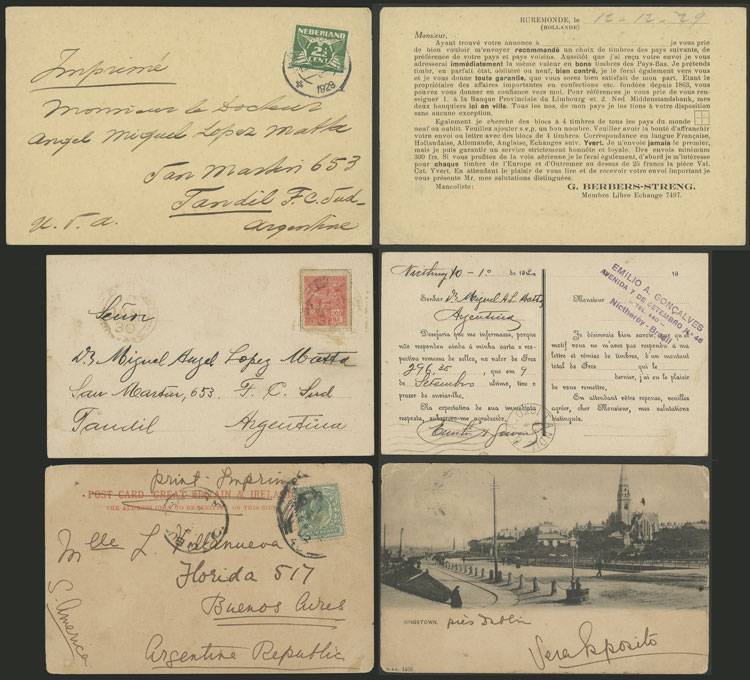 NEDERLAND
2½
CENT
1929
Imprimé
Monsieur le Docteur
Angel Miguel Lopez Matta
San Martin 653
Tandil F.C. Sud-
Argentine
RUREMONDE, le 12-12-29
(HOLLANDE)
Monsieur,
Ayant trouvé votre annonce à je vous prie
de bien vouloir m'envoyer recommandé un choix de timbres des pays suivants, de
préférence de votre pays et pays voisins. Aussitôt que j'ai reçu votre envoi je vous
adresserai immédiatement la même valeur en bons timbres des Pays-Bas. Je prétends
timbr. en parfait état, oblitéré ou neuf, bien centré, je le ferai également vers vous
et je vous donne toute garantie, que vous serez bien satisfait de mon part. Etant le
propriétaire des affaires importants en confections etc. fondées depuis 1863, vous
pouvez vous donner en confiance vers moi. Pour références je vous prie de vous ren-
seigner 1. à la Banque Provinciale du Limbourg et 2. Ned. Middenstandsbank, mes
deux banquiers ici en ville. Tous les nos. de mon pays je les tiens à votre disposition
sans aucune exception.
Egalement je cherche des blocs à 4 timbres de tous les pays du monde
neuf ou oblit. Veuillez ajouter s.v.p. un bon nombre. Veuillez avoir la bonté d'affranchir
votre envoi ou lettre avec des blocs de 4 timbres. Correspondance en langue Française,
Hollandaise, Allemande, Anglaise, Echanges suiv. Yvert. Je n'envoie jamais le premier,
mais je puis garantir un service strictement honnête et loyale. Des envois minimum
300 frs. Si vous profites de la voie aérienne je le ferai également, d'abord je m'intéresse
pour chaque timbre de l'Europe et d'Outremer au dessus de 25 francs la pièce Val.
Cat. Yvert. En attendant le plaisir de vous lire et de recevoir votre envoi important je
vous présente Mr. mes salutations distinguées.
Mancoliste: G. BERBERS-STRENG.
Membre Libre Echange 7497.
30
Señor
Dr. Miguel Angel Lopez Matta
San Martin, 653 F. C. Sud
Tandil Argentina
10-1º de 19
Senhor Dr. Miguel A.L. Matta
Argentina
Desejaria que me informasse, porque
não responden ainda á minha carta e res-
pectiva remessa de sellos, no valor de Frcs
296,25, que em 9
de Setembro ultimo, tive o
prazer de enviar-lhe.
Na expectativa de sua immediata
resposta, subscrevo-me agradecido.
19
Monsieur
EMILIO A. GONÇALVES
AVENIDA 7 DE SETEMBRO Nº 46
TEL. 440
Nictheroy - Brasil
Je désirerais bien savoir, quel est le
motif vous ne m'avez pas répondu á ma
lettre et rémise de timbres, d'un montant
total de Frcs qui le
dernier, j'ai eu le plaisir
de vous remettre.
En attendant vôtre reponse, veuilles
agréer, cher Monsieur, mes salutations
distinguées.
print-Imprimé
POST CARD GREAT BRITAIN & IRELAND
THE ADDRESS ONLY TO BE WRITTEN ON THIS SIDE
Mlle L. Villanueva
Florida 517
Buenos Aires
S. America
Argentine Republic
KINGSTOWN. près Dublin
Vera Esposito